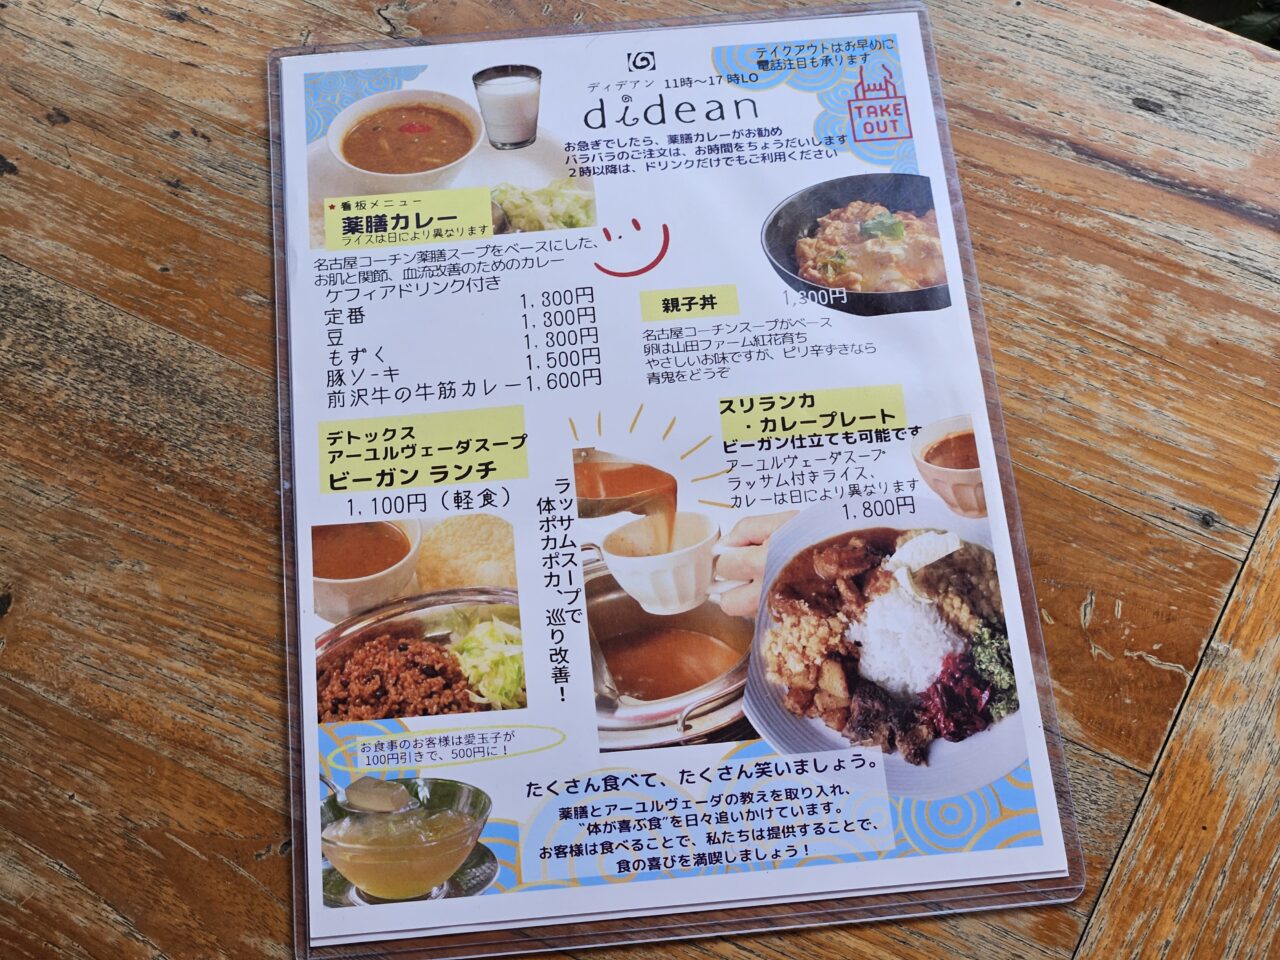 テイクアウトはお早めに
電話注目も承ります
TAKE
OUT
ディデアン 11時～17時LO
didean
お急ぎでしたら、薬膳カレーがお勧め
バラバラのご注文は、お時間をちょうだいします
2時以降は、ドリンクだけでもご利用ください
★看板メニュー
薬膳カレー
ライスは日により異なります
名古屋コーチン薬膳スープをベースにした、
お肌と関節、血流改善のためのカレー
ケフィアドリンク付き
定番 1,300円
豆 1,300円
もずく 1,300円
豚ソーキ 1,500円
前沢牛の牛筋カレー 1,600円
親子丼 1,300円
名古屋コーチンスープがベース
卵は山田ファーム紅花育ち
やさしいお味ですが、ピリ辛ずきなら
青鬼をどうぞ
デトックス
アーユルヴェーダスープ
ビーガン ランチ
1,100円（軽食）
ラッサムスープで
体ポカポカ、巡り改善！
スリランカ
・カレープレート
ビーガン仕立ても可能です
アーユルヴェーダスープ
ラッサム付きライス、
カレーは日により異なります
1,800円
お食事のお客様は愛玉子が
100円引きで、500円に！
たくさん食べて、たくさん笑いましょう。
薬膳とアーユルヴェーダの教えを取り入れ、
“体が喜ぶ食”を日々追いかけています。
お客様は食べることで、私たちは提供することで、
食の喜びを満喫しましょう！